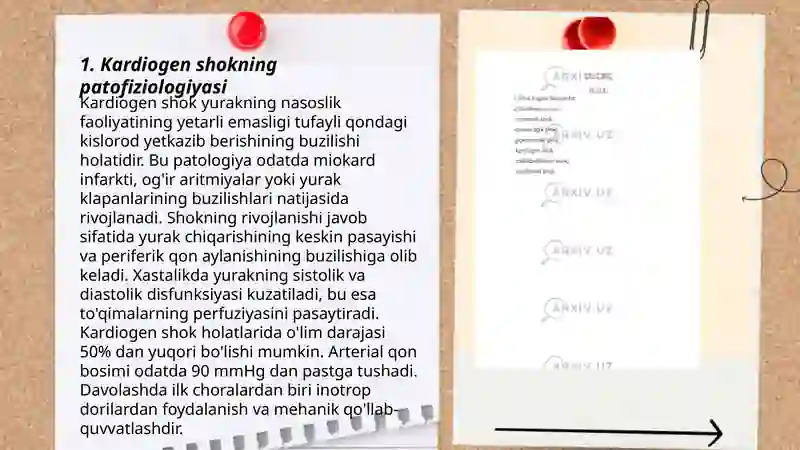 1. Kardiogen shokning
patofiziologiyasi
Kardiogen shok yurakning nasoslik
faoliyatining yetarli emasligi tufayli qondagi
kislorod yetkazib berishining buzilishi
holatidir. Bu patologiya odatda miokard
infarkti, og'ir aritmiyalar yoki yurak
klapanlarining buzilishlari natijasida
rivojlanadi. Shokning rivojlanishi javob
sifatida yurak chiqarishining keskin pasayishi
va periferik qon aylanishining buzilishiga olib
keladi. Xastalikda yurakning sistolik va
diastolik disfunksiyasi kuzatiladi, bu esa
to'qimalarning perfuziyasini pasaytiradi.
Kardiogen shok holatlarida o'lim darajasi
50% dan yuqori bo'lishi mumkin. Arterial qon
bosimi odatda 90 mmHg dan pastga tushadi.
Davolashda ilk choralardan biri inotrop
dorilardan foydalanish va mehanik qo'llab-
quvvatlashdir.
ARXIV.UZ
ARXIV.UZ
ARXIV.UZ
ARXIV.UZ
ARXIV.UZ